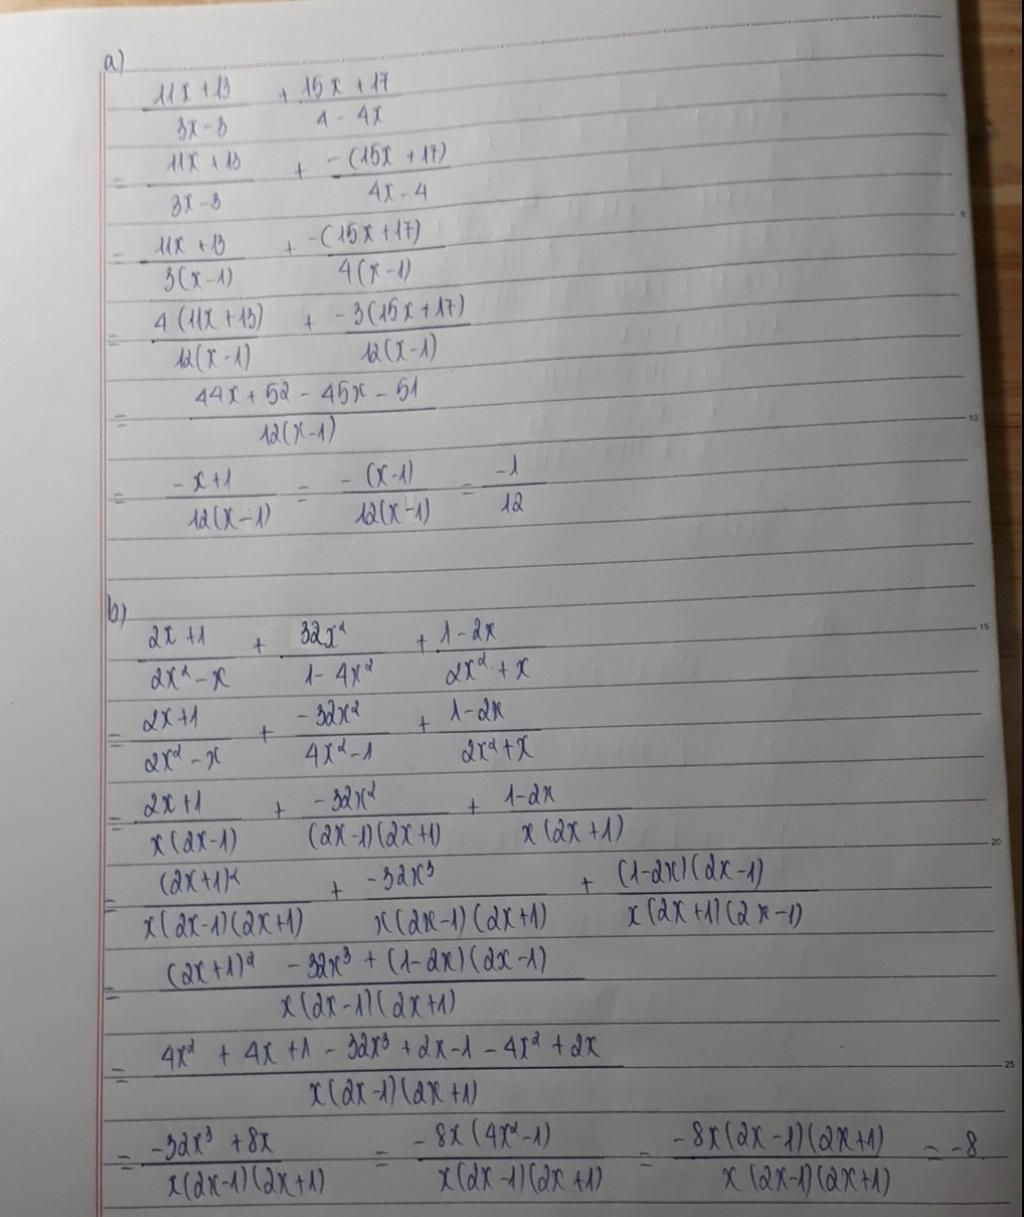 a)
(11x+13)/(3x-3) + (15x+17)/(4-4x)
= (11x+13)/(3x-3) + (-(15x+17))/(4x-4)
= (11x+13)/(3(x-1)) + (-(15x+17))/(4(x-1))
= (4(11x+13))/(12(x-1)) + (-3(15x+17))/(12(x-1))
= (44x+52-45x-51)/(12(x-1))
= (-x+1)/(12(x-1)) = (-(x-1))/(12(x-1)) = (-1)/12
b)
(2x+1)/(2x²-x) + (32x²)/(1-4x²) + (1-2x)/(2x²+x)
= (2x+1)/(2x²-x) + (-32x²)/(4x²-1) + (1-2x)/(2x²+x)
= (2x+1)/(x(2x-1)) + (-32x²)/((2x-1)(2x+1)) + (1-2x)/(x(2x+1))
= (2x+1)²/(x(2x-1)(2x+1)) + (-32x³)/(x(2x-1)(2x+1)) + ((1-2x)(2x-1))/(x(2x+1)(2x-1))
= ((2x+1)² - 32x³ + (1-2x)(2x-1))/(x(2x-1)(2x+1))
= (4x² + 4x + 1 - 32x³ + 2x - 1 - 4x² + 2x)/(x(2x-1)(2x+1))
= (-32x³ + 8x)/(x(2x-1)(2x+1)) = (-8x(4x²-1))/(x(2x-1)(2x+1)) = (-8x(2x-1)(2x+1))/(x(2x-1)(2x+1)) = -8
5
10
15
20
25